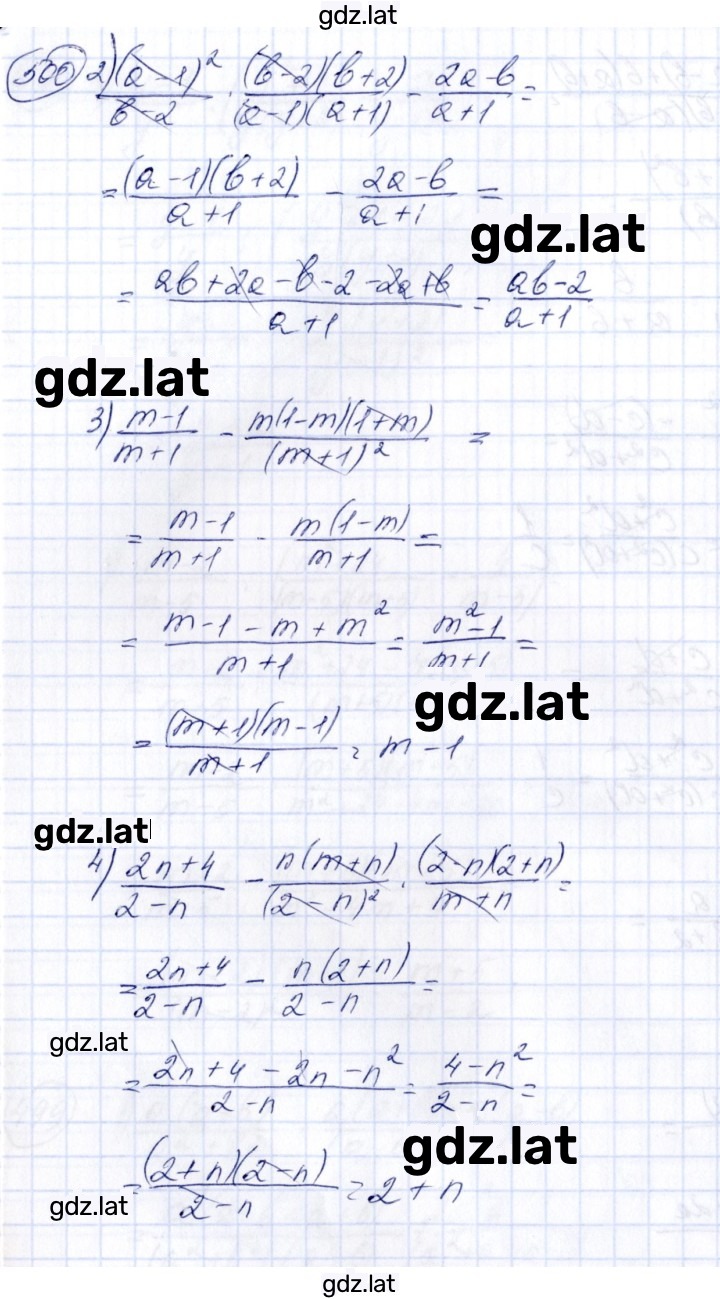 gdz.lat
500 2) (a-1)²/(b-2) · (b-2)(b+2)/(a-1)(a+1) - (2a-b)/(a+1) =
= (a-1)(b+2)/(a+1) - (2a-b)/(a+1) =
gdz.lat
= (ab+2a-b-2-2a+b)/(a+1) = (ab-2)/(a+1)
gdz.lat
3) (m-1)/(m+1) - m(1-m)(1+m)/(m+1)² =
= (m-1)/(m+1) - m(1-m)/(m+1) =
= (m-1-m+m²)/(m+1) = (m²-1)/(m+1) =
gdz.lat
= (m+1)(m-1)/(m+1) = m-1
gdz.lat
4) (2n+4)/(2-n) - n(m+n)/(2-n)² · (2-n)(2+n)/(m+n) =
= (2n+4)/(2-n) - n(2+n)/(2-n) =
gdz.lat
= (2n+4-2n-n²)/(2-n) = (4-n²)/(2-n) =
gdz.lat
= (2+n)(2-n)/(2-n) = 2+n
gdz.lat
gdz.lat